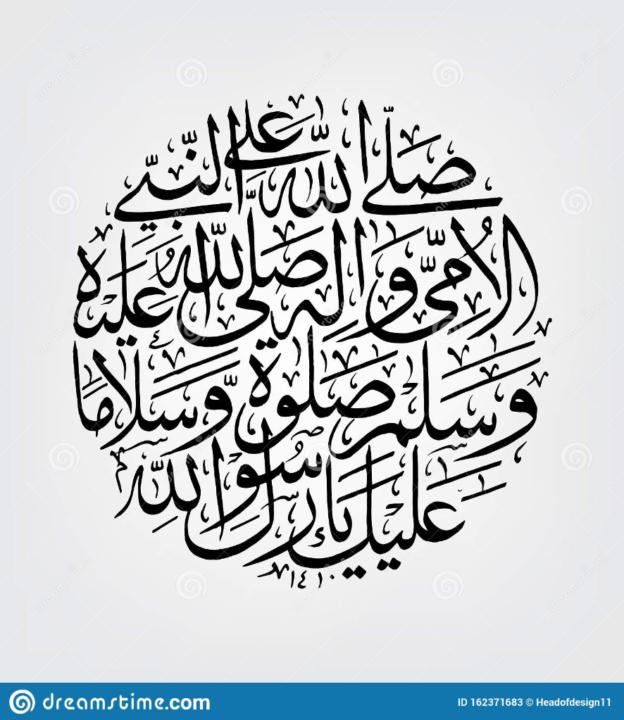 صَلَّى اللهُ عَلَى النَّبِيِّ
الْاُمِّيِّ وَاٰلِهٖ صَلَّى اللهُ عَلَيْهِ
وَسَلَّمَ صَلٰوةً وَّسَلَامًا
عَلَيْكَ يَا رَسُوْلَ اللهِ
١٤١٠
dreamstime.com
ID 162371683 © Headofdesign11